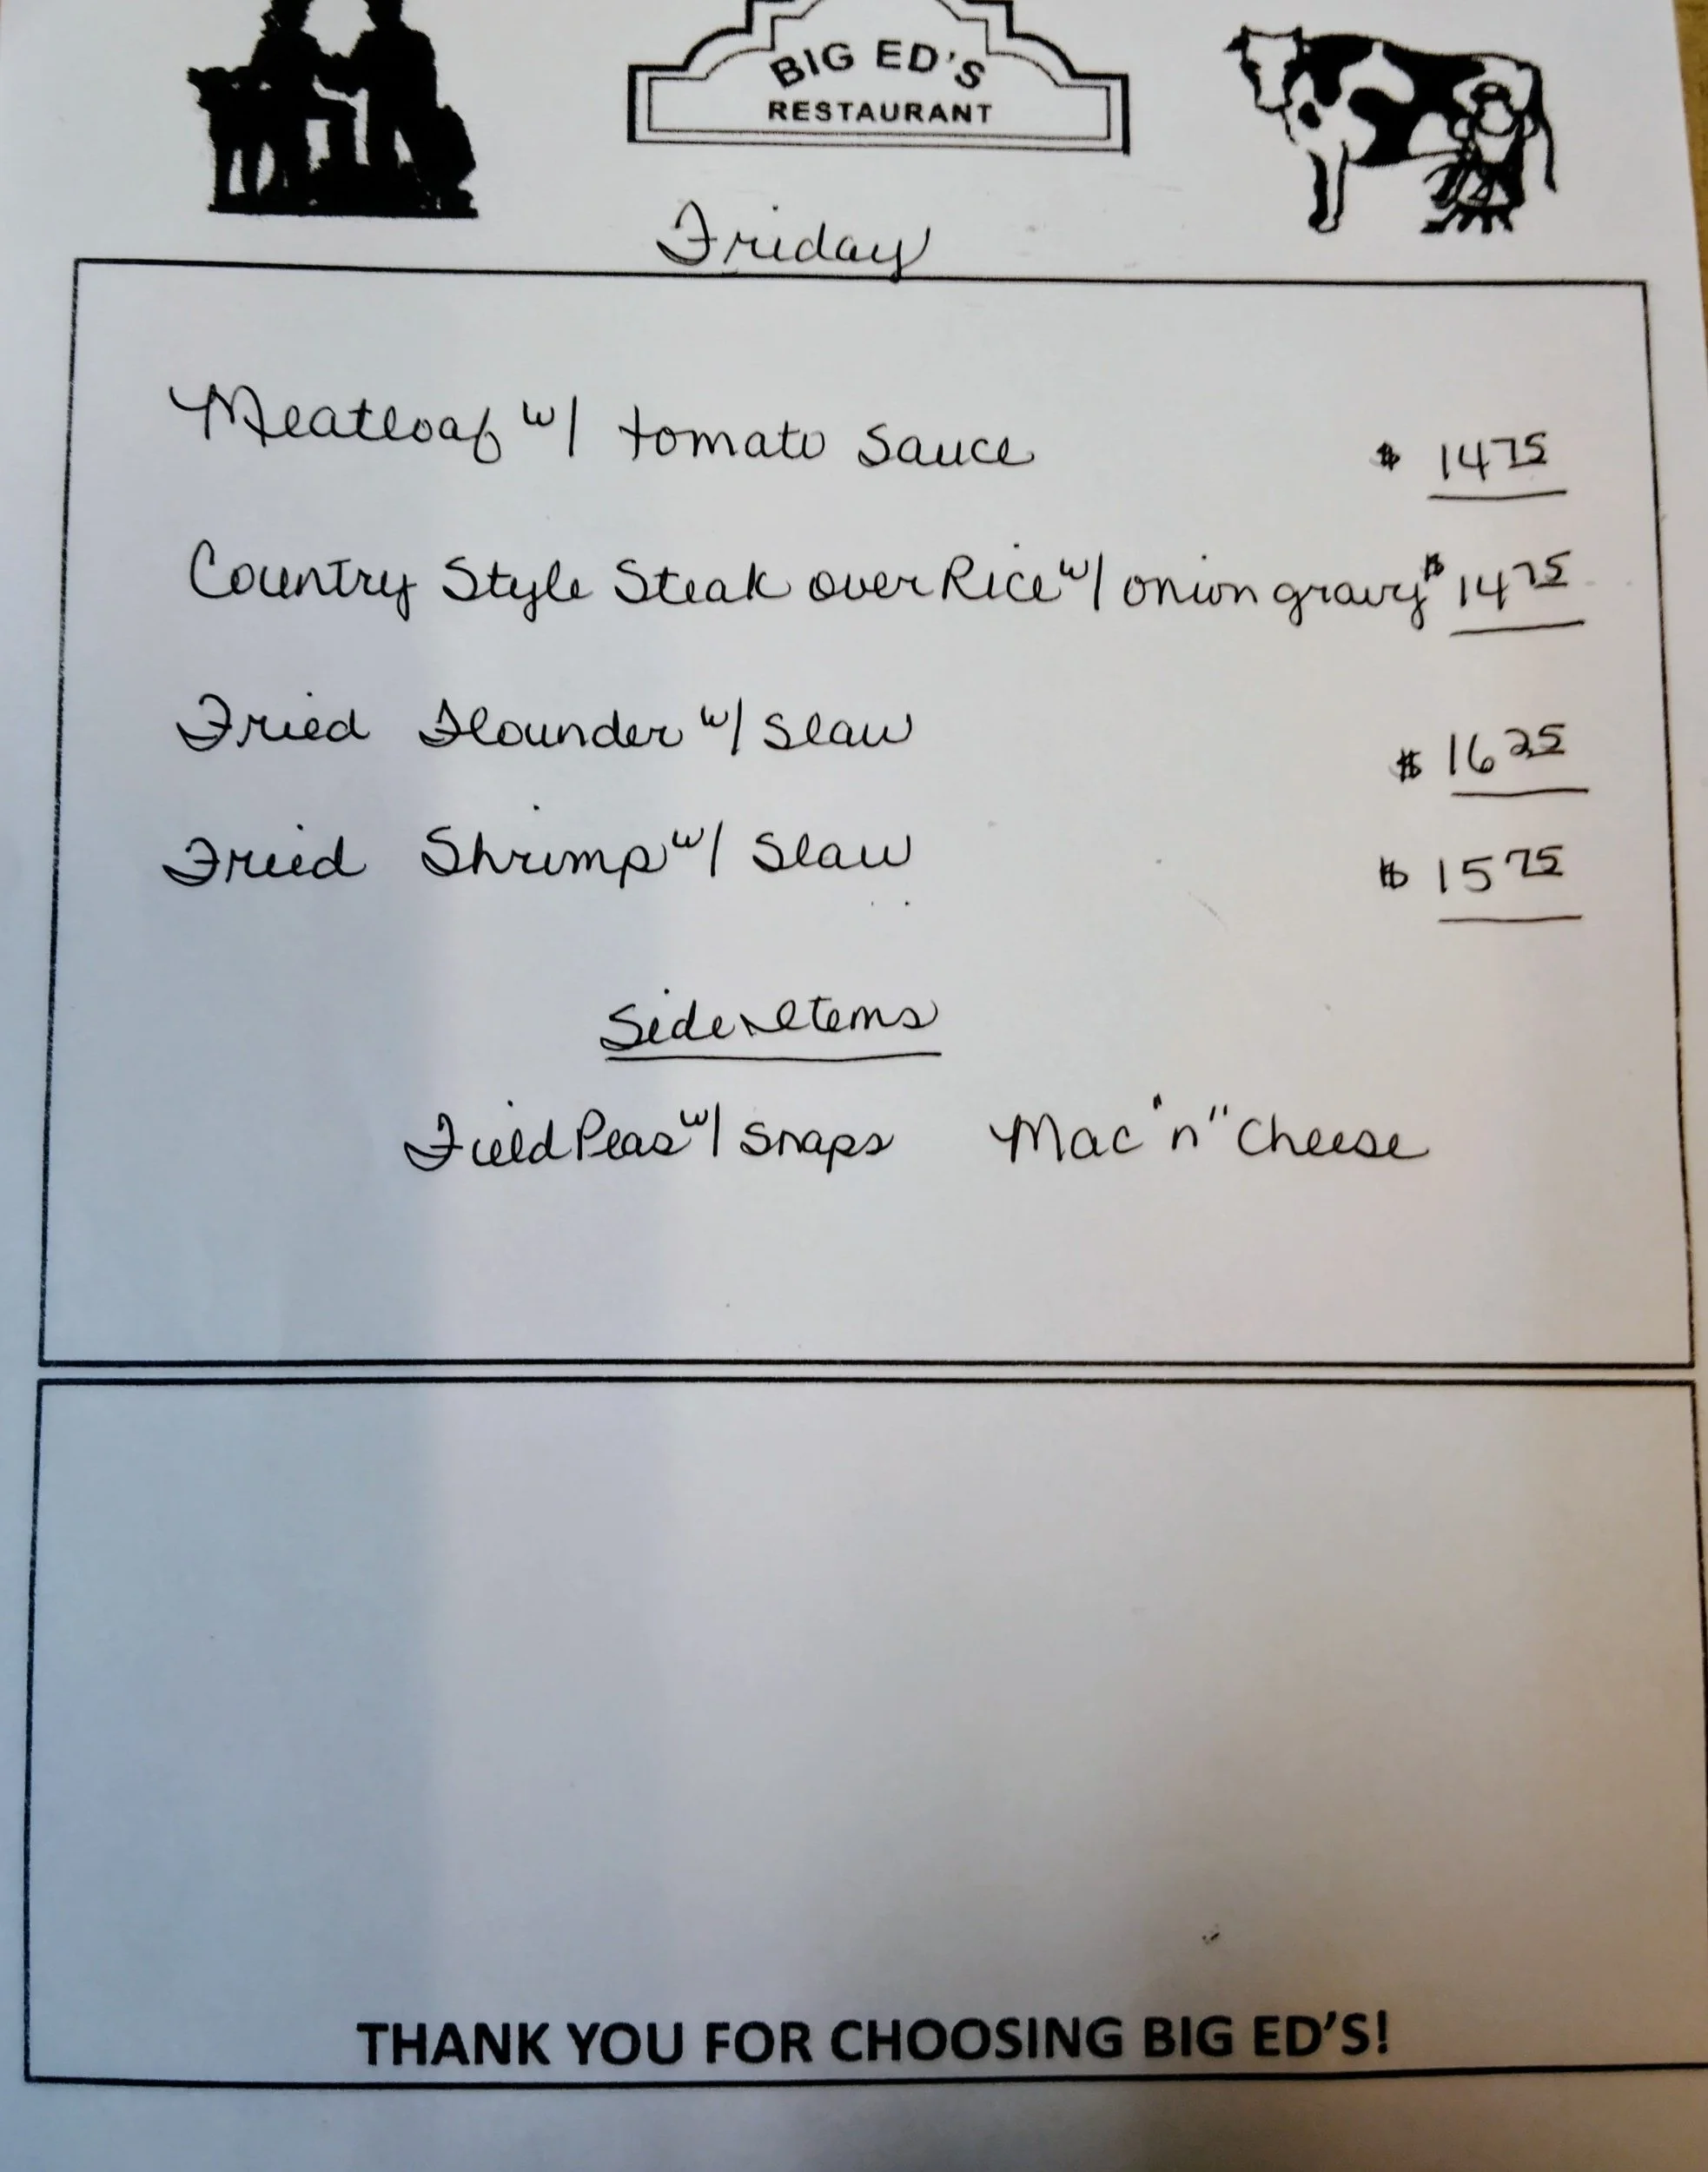 BIG ED'S
RESTAURANT
Friday
Meatloaf w/ tomato sauce $ 14 75
Country Style Steak over Rice w/ onion gravy $ 14 75
Fried Flounder w/ Slaw $ 16 25
Fried Shrimp w/ Slaw $ 15 75
Side Items
Field Peas w/ Snaps Mac "n" Cheese
THANK YOU FOR CHOOSING BIG ED'S!